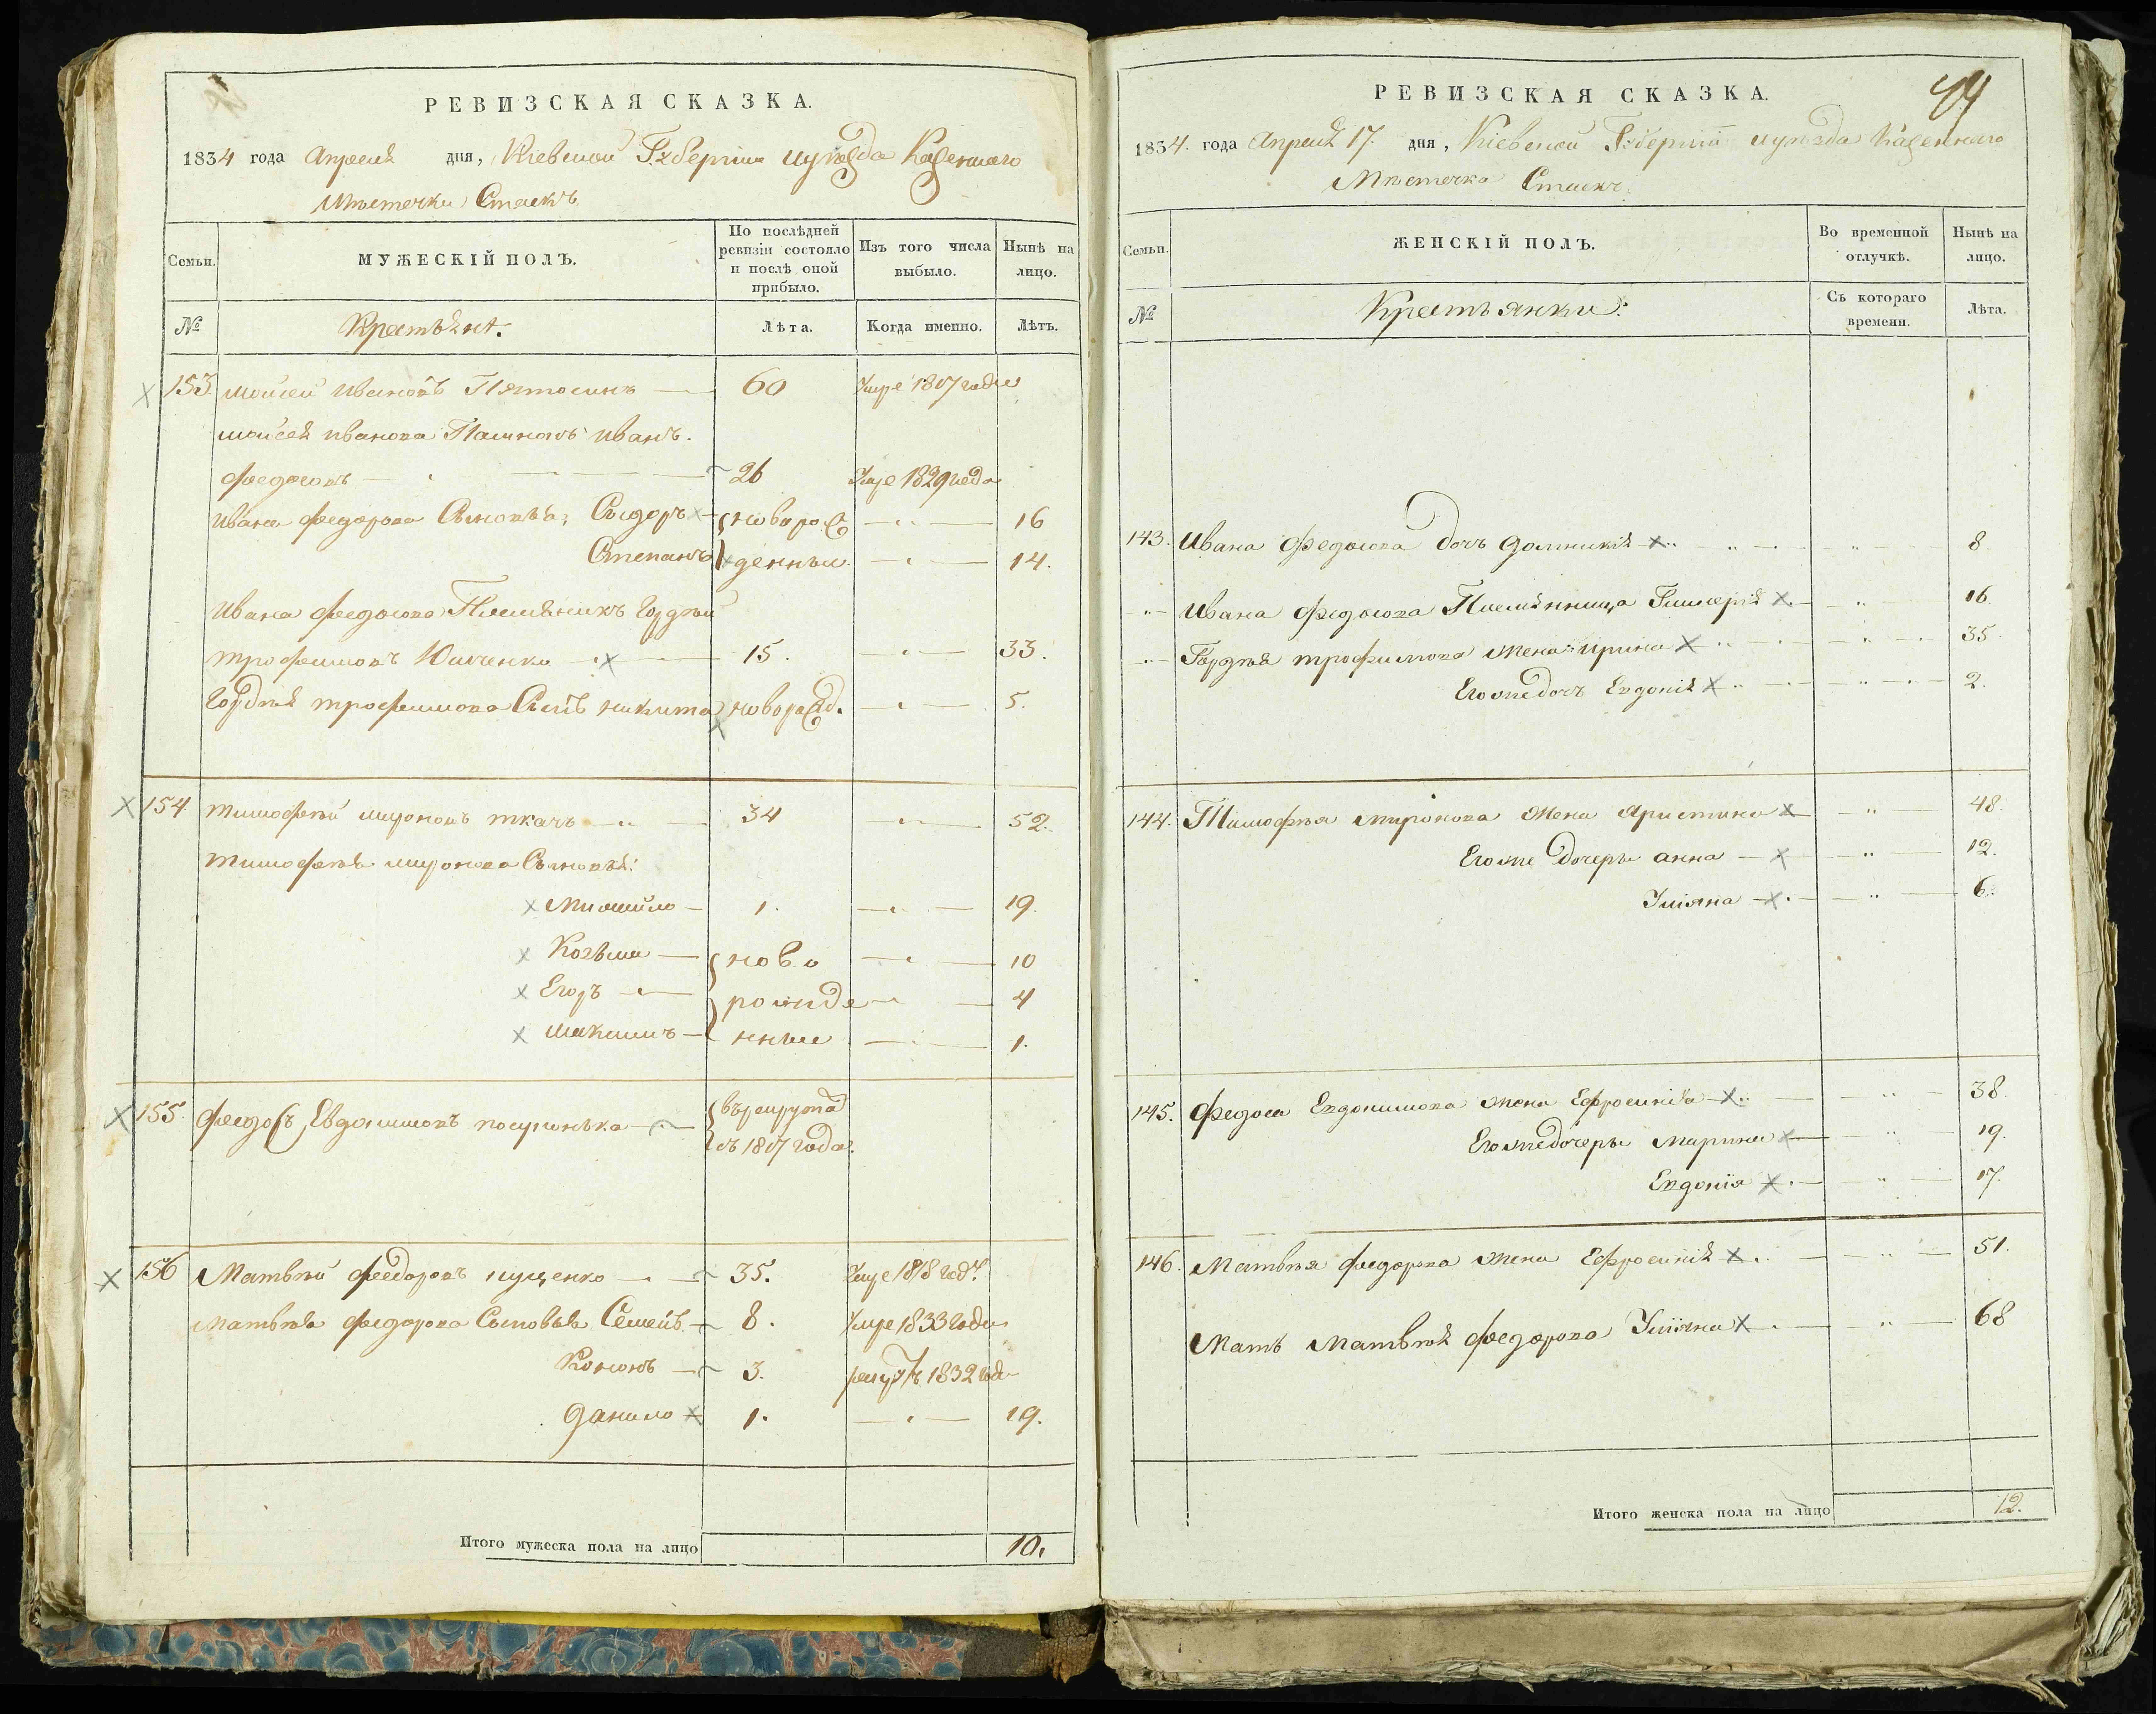 РЕВИЗСКАЯ СКАЗКА.
1834 года Апреля дня, Кіевской Губерніи и уѣзда Казеннаго
Мѣстечка Стаекъ
Семьи. МУЖЕСКІЙ ПОЛЪ. По послѣдней ревизіи состояло и послѣ оной прибыло. Изъ того числа выбыло. Нынѣ на лицо.
№ Крестьяне. Лѣта. Когда именно. Лѣтъ.
153. Мойсей Ивановъ 60 Умре 1817 года
Мойсея Иванова Иванъ
Федосовъ 26 Умре 1829 года
Ивана Федорова Сыновья, Сидоръ новорож 16
Степанъ денныи 14.
Ивана Федосова Племянникъ Гордѣй
Трофимовъ Ющенко 15. 33.
Гордѣя Трофимова Сынъ Никита новорожд. 5.
154. Тимофѣй Мироновъ Ткачъ 34 52.
Тимофѣя Миронова Сыновья:
Михайло 1. 19.
Козьма ново 10
Егоръ рожде 4
Максимъ нные 1.
155. Федосъ Евдокимовъ въ рекрута
съ 1817 года.
156 Матвѣй Федоровъ Куценко 35. Умре 1818 год.
Матвѣя Федорова Сыновья Семенъ 8. Умре 1833 года
Кононъ 3. 1832 год
Данило 1. 19.
Итого мужеска пола на лицо 10.
44
РЕВИЗСКАЯ СКАЗКА.
1834. года Апреля 17. дня, Кіевской Губерніи и уѣзда Казеннаго
Мѣстечка Стаекъ.
Семьи. ЖЕНСКІЙ ПОЛЪ. Во временной отлучкѣ. Нынѣ на лицо.
№ Крестьянки: Съ котораго времени. Лѣта.
143. Ивана Федосова дочь Домникія 8
Ивана Федосова Племянница Гликерія 16.
Гордѣя Трофимова Жена Ирина 35.
Его же дочь Евдокія 2.
144. Тимофѣя Миронова Жена 48.
Его же дочери Анна 12.
Уліяна 6.
145. Федоса Евдокимова Жена Ефросинія 38.
Его же дочери Марина 19.
Евдокія 17.
146. Матвѣя Федорова Жена Ефросинія 51.
Мать Матвѣя Федорова Уліяна 68
Итого женска пола на лицо 12.